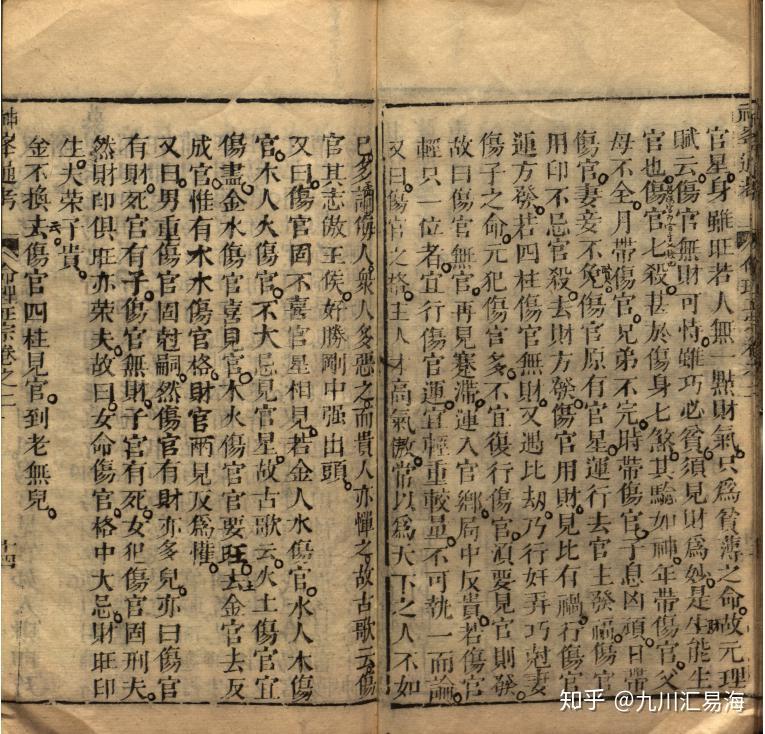 官星身雖旺若人無一點財氣只爲貧薄之命故元理
賦云傷官無財可恃雖巧必貧須見財爲妙是生能生
官也傷官七殺甚於傷身七煞其驗如神年帶傷官父
母不全月帶傷官兄弟不完時帶傷官子息凶頑日帶
傷官妻妾不免傷官原有官星運行去官主發福傷官
用印不忌官殺去財方發傷官用財見比有禍行傷官
運方發若四柱傷官無財又遇比劫乃行奸弄巧尅妻
傷子之命元犯傷官多不宜復行傷官須要見官則發
故曰傷官無官再見蹇滯運入官鄉局中反貴若傷官
輕只一位者宜行傷官運宜輕重較量不可執一而論
又曰傷官之格主人才高氣傲常以爲天下之人不如
己多謫侮人衆人多惡之而貴人亦憚之故古歌云傷
官其志傲王侯好勝剛中强出頭
又曰傷官固不喜官星相見若金人水傷官水人木傷
官木人火傷官不大忌見官星故古歌云火土傷官宜
傷盡金水傷官喜見官木火傷官官要旺土金官去反
成官惟有水木傷官格財官兩見反爲懽
又曰男重傷官固尅嗣然傷官有財亦多兒亦曰傷官
有財死官有子傷官無財子官有死女犯傷官固刑夫
然財印俱旺亦榮夫故曰女命傷官格中大忌財旺印
生夫榮子貴
金不換云傷官四柱見官到老無兒
神峯通考
命理正宗卷之二
十四
知乎 @九川汇易海